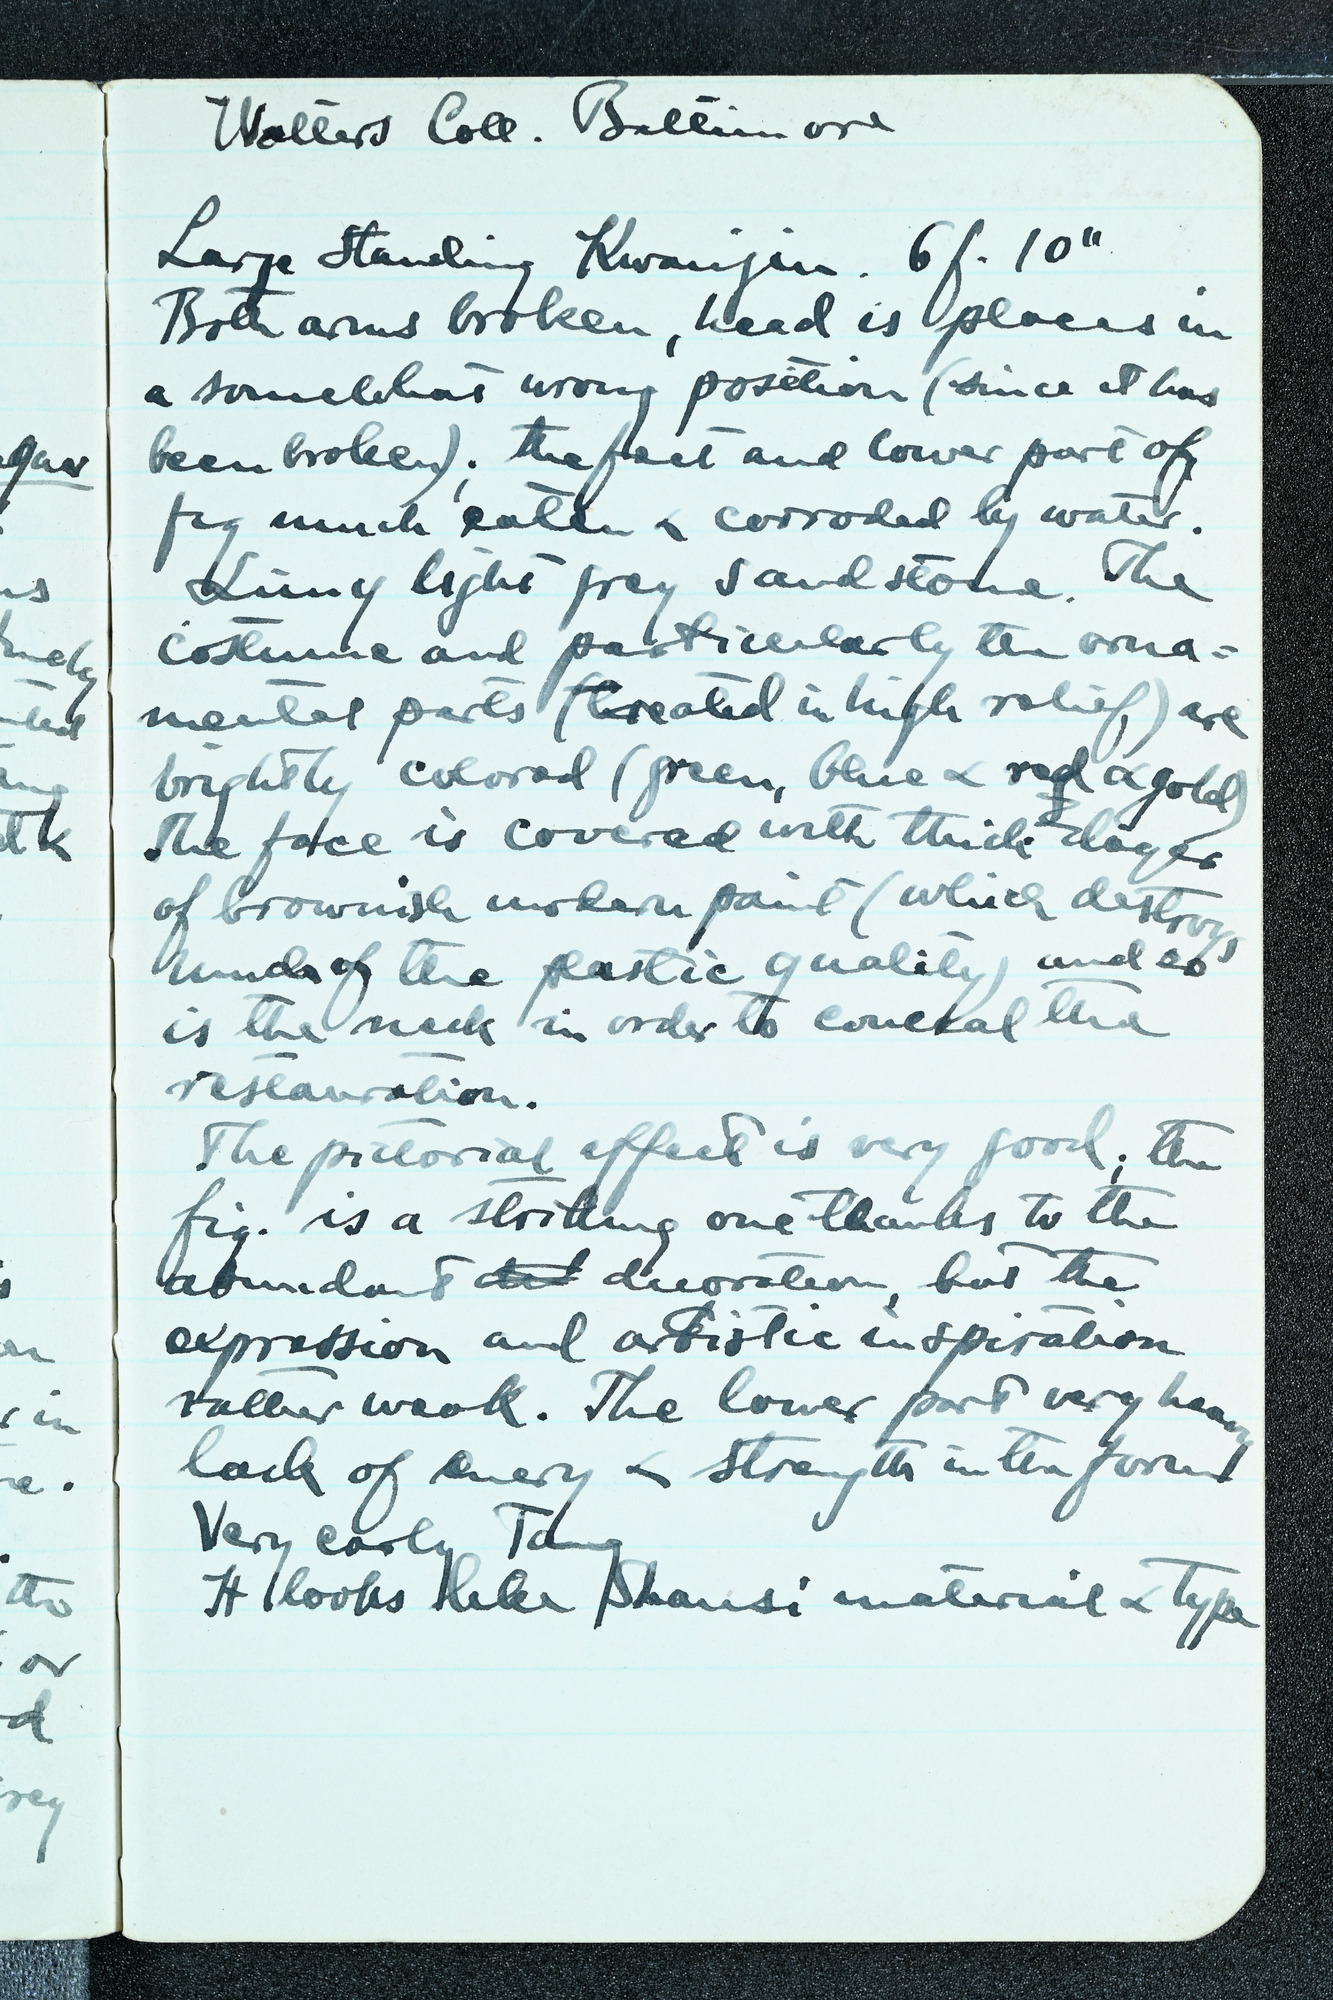 Walters Coll. Baltimore
Large Standing Kwanyin. 6f. 10"
Both arms broken, head is places in
a somewhat wrong position (since it has
been broken); the feet and lower part of
fig much eaten & corroded by water.
Limy light grey Sandstone. The
costume and particularly the orna=
mental parts (treated in high relief) are
brightly colored (green, blue & red & gold)
The face is covered with thick layer
of brownish modern paint (which destroys
much of the plastic quality) and so
is the neck in order to conceal the
restauration.
The pictorial effect is very good; the
fig. is a striking one thanks to the
abundant decoration, but the
expression and artistic inspiration
rather weak. The lower part very heavy
lack of energy & strength in the forms
Very early Tang
It looks like Shansi material & type